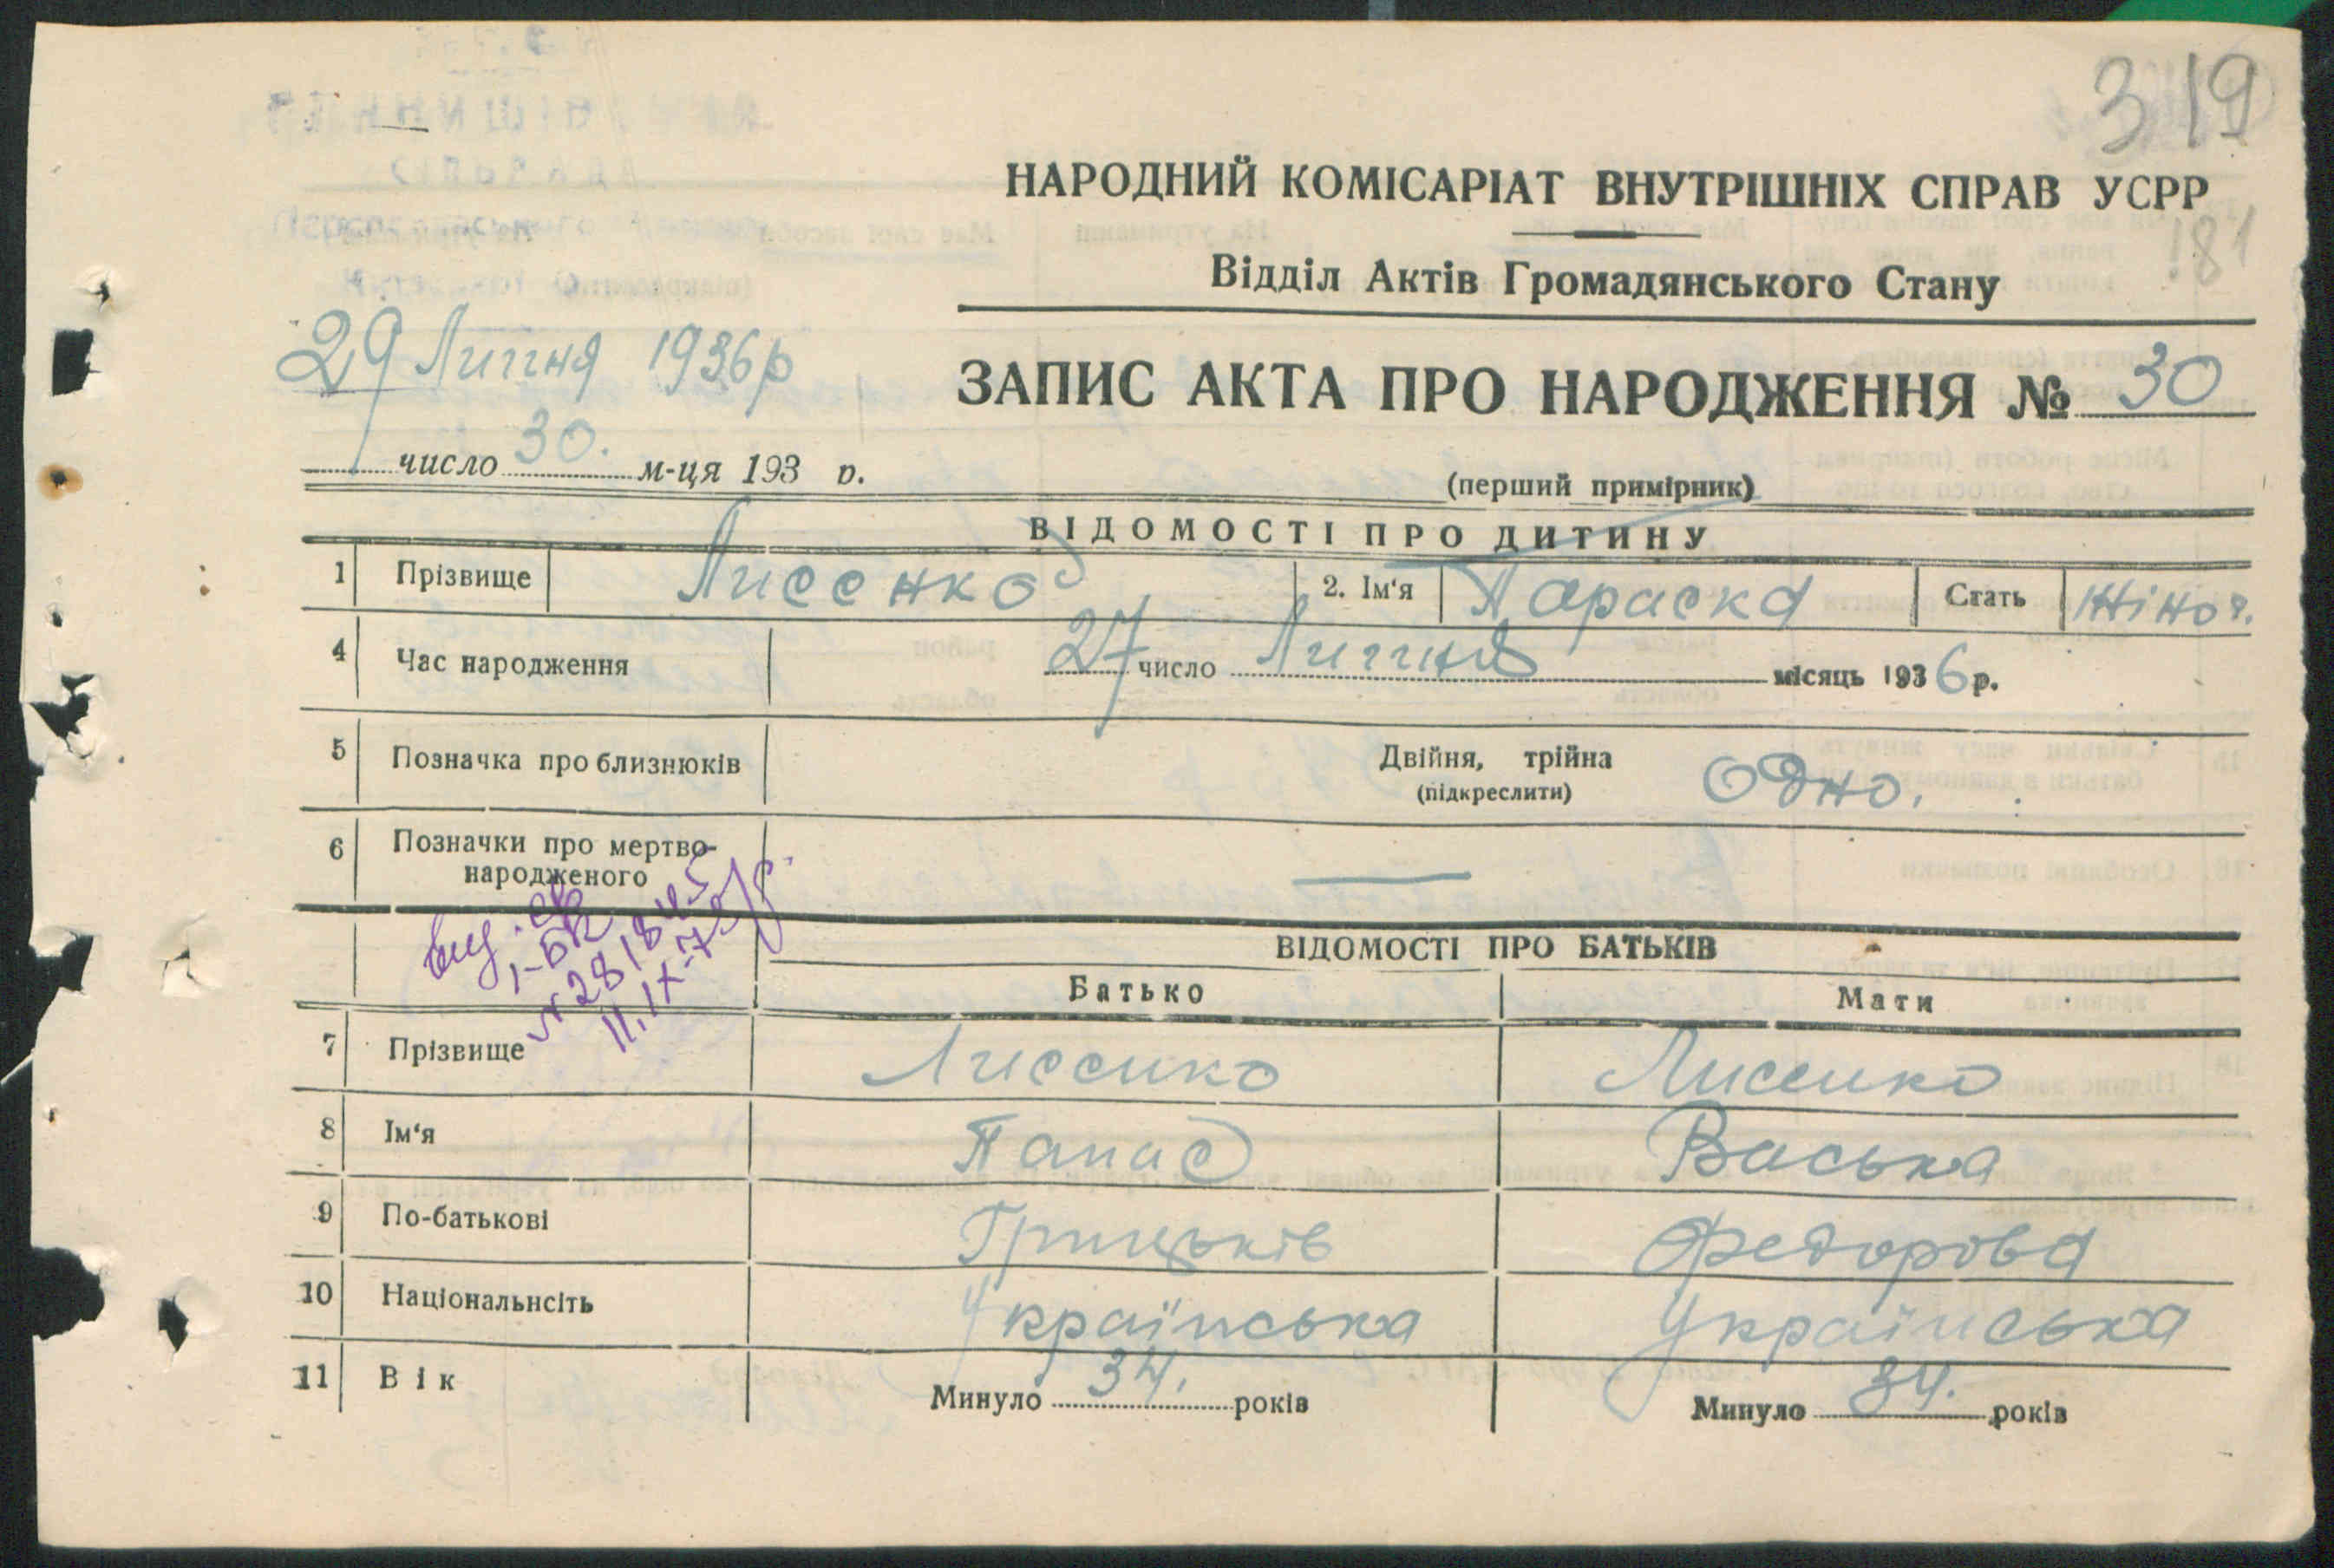 319
НАРОДНИЙ КОМІСАРІАТ ВНУТРІШНІХ СПРАВ УСРР
181
Відділ Актів Громадянського Стану
29 Липня 1936р
ЗАПИС АКТА ПРО НАРОДЖЕННЯ № 30
число 30. м-ця 193 р.
(перший примірник)
ВІДОМОСТІ ПРО ДИТИНУ
1 Прізвище Лисенко 2. Ім'я Параска Стать Жіноч.
4 Час народження 27 число Липня місяць 1936р.
5 Позначка про близнюків Двійня, трійна Одно.
(підкреслити)
6 Позначки про мертво-
народженого —
ВІДОМОСТІ ПРО БАТЬКІВ
Батько Мати
7 Прізвище Лисенко Лисенко
8 Ім'я Панас Васька
9 По-батькові Грицьків Федорова
10 Національнсіть Українська Українська
11 Вік Минуло 34. років Минуло 34. років